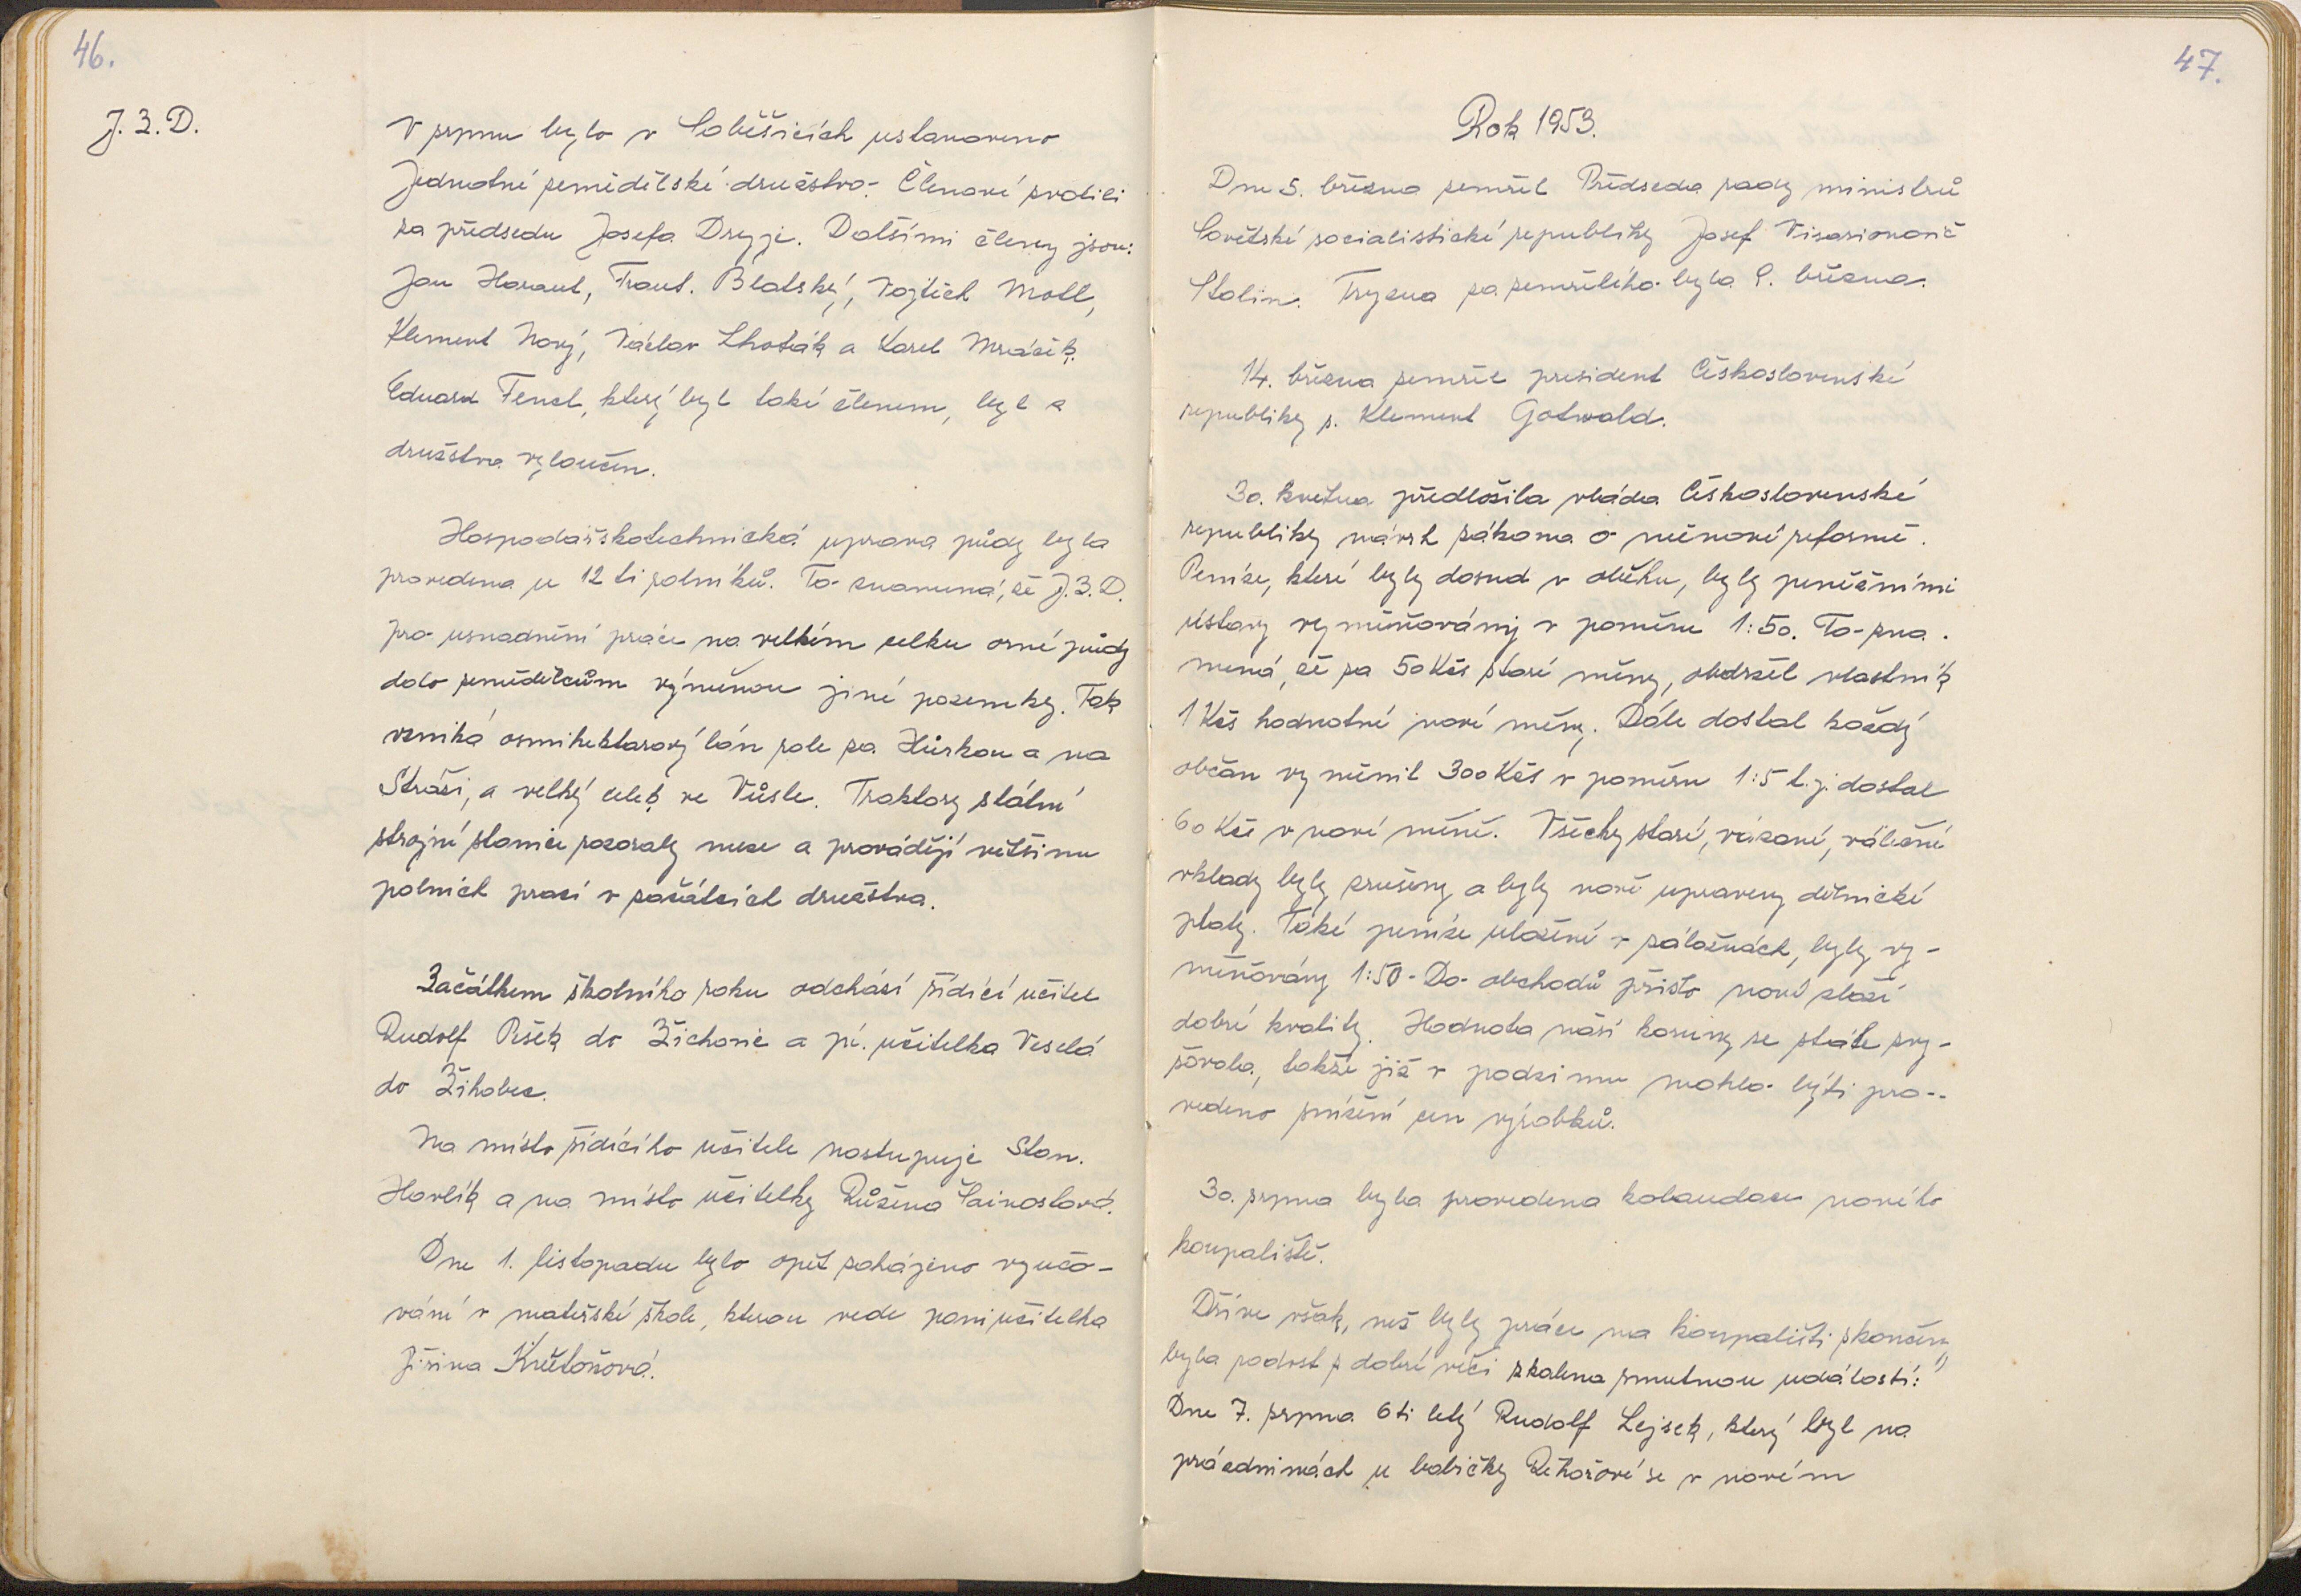 46.
J. Z. D.
V srpnu bylo v Soběšicích ustanoveno
Jednotné zemědělské družstvo. Členové zvolili
za předsedu Josefa Dryje. Dalšími členy jsou:
Jan Harant, Frant. Blatský, Vojtěch Moll,
Klement Nový, Václav Lhoták a Karel Mráček.
Eduard Fencl, který byl také členem, byl z
družstva vyloučen.
Hospodářskotechnická uprava půdy byla
provedena u 12 ti rolníků. To znamená, že J.Z.D.
pro usnadnění práce na velkém celku orné půdy
dalo zemědělcům výměnou jiné pozemky. Tak
vzniká osmihektarový lán pole za Hůrkou a na
Stráži, a velký celek ve Vůsle. Traktory státní
strojní stanice rozoraly meze a provádějí většinu
polních prací v začátcích družstva.
Začátkem školního roku odchází řídící učitel
Rudolf Pešek do Žichovic a pí. učitelka Veselá
do Žihobec.
Na místo řídícího učitele nastupuje Stan.
Havlík a na místo učitelky Růžena Šairoslová.
Dne 1. listopadu bylo opět zahájeno vyučo-
vání v mateřské škole, kterou vede paní učitelka
Jiřina Květoňová.
47.
Rok 1953.
Dne 5. března zemřel Předseda rady ministrů
Sovětské socialistické republiky Josef Visarionovič
Stalin. Tryzna za zemřelého byla 9. března.
14. března zemřel president Československé
republiky s. Klement Gotwald.
30. května předložila vláda Československé
republiky návrh zákona o měnové reformě.
Peníze, které byly dosud v oběhu, byly peněžními
ústavy vyměňovány v poměru 1:50. To zna.
mená, že za 50 Kčs staré měny, obdržel vlastník
1 Kčs hodnotné nové měny. Dále dostal každý
občan vyměnit 300 Kčs v poměru 1:5 t.j. dostal
60 Kčs v nové měně. Všechy staré, vázané, válečné
vklady byly zrušeny a byly nově upraveny dělnické
platy. Také peníze uložené v záložnách, byly vy-
měňovány 1:50. Do obchodů přišlo nové zboží
dobré kvality. Hodnota naší koruny se stále zvy-
šovala, takže již v podzimu mohlo býti pro-
vedeno snížení cen výrobků.
30. srpna byla provedena kolaudace nového
koupaliště.
Dříve však, než byly práce na koupališti skončeny,
byla radost z dobré věci zkalena smutnou událostí:
Dne 7. srpna 6 ti letý Rudolf Lejsek, který byl na
prázdninách u babičky Řehořové se v novém